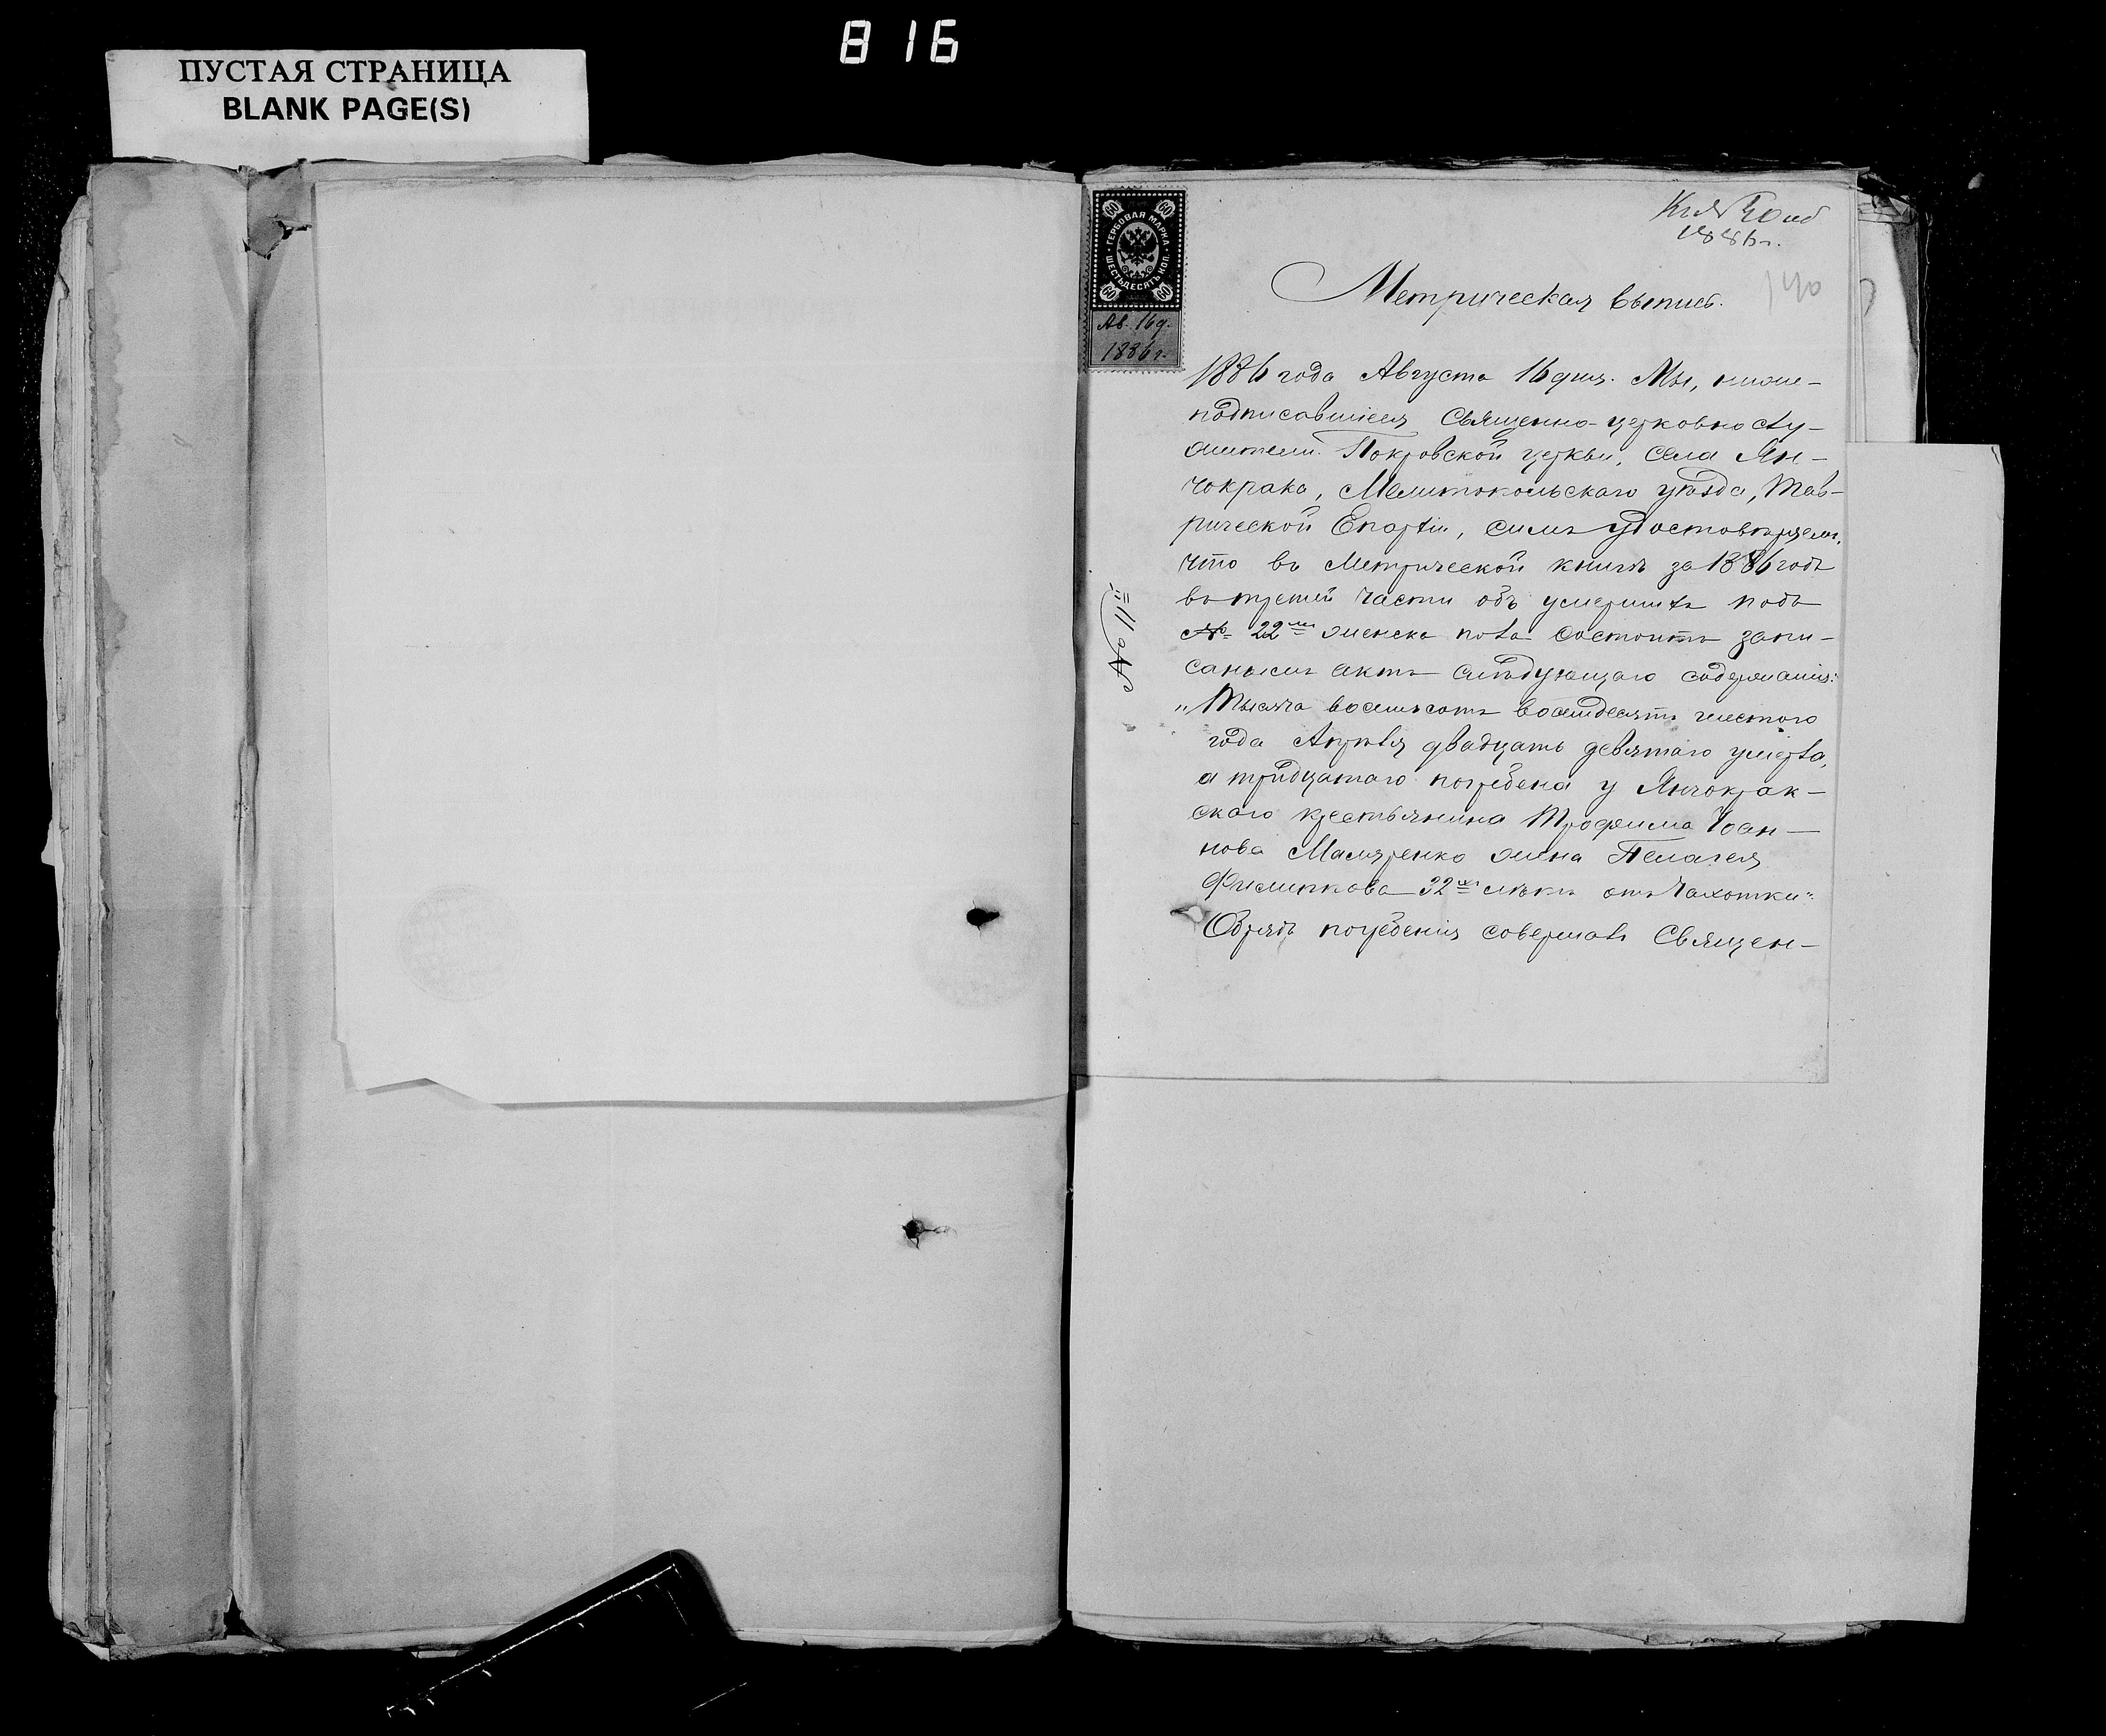 816
ПУСТАЯ СТРАНИЦА
BLANK PAGE(S)
1886 г.
140
60 60
ГЕРБОВАЯ МАРКА
ШЕСТЬДЕСЯТЪ КОП.
60 60
Ав. 16 д.
1886 г.
Метрическая выпись.
1886 года Августа 16 дня. Мы, ниже-
подписавшіеся Священно-церковнослу-
жители Покровской церкви, села Ян-
чокрака, Мелитопольскаго уѣзда, Тав-
рической Епархіи, симъ удостовѣряемъ,
что въ Метрической книгѣ за 1886 годъ
въ третей части объ умершихъ подъ
№ 22мъ женска пола состоитъ запи-
саннымъ актъ слѣдующаго содержанія:
„Тысяча восемьсотъ восемдесятъ шестого
года Апрѣля двадцать девятаго умерла,
а тридцатаго погребена у Янчокрак-
скаго крестьянина Трофима Іоан-
нова Маляренко жена Пелагея
Филиппова 32хъ лѣтъ отъ Чахотки“.
Обрядъ погребенія совершалъ Священ-
№ 11